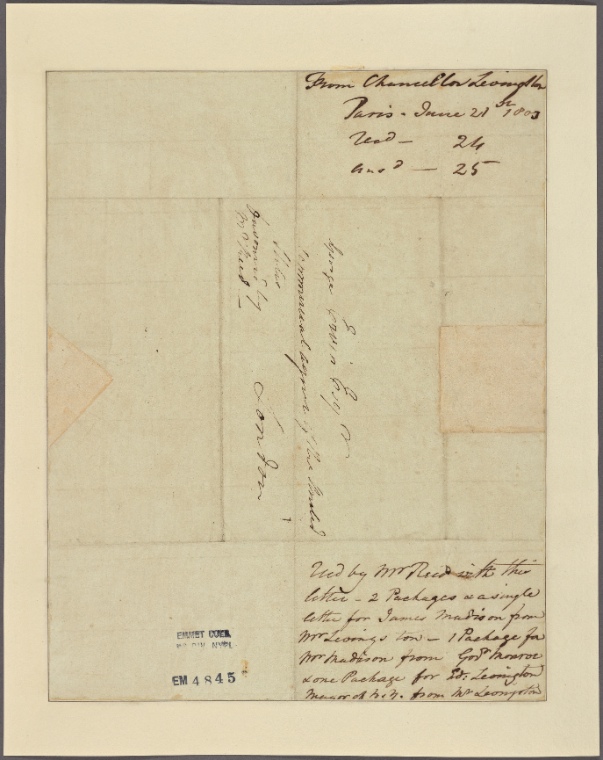 From Chancellor Levingston
Paris - June 21st 1803
Recd - 24
ansd - 25
George Erwin Esqr
Commercial agent of the United
States
London
Favoured by
Mr Reed -
Recd by Mr Reed with this
letter - 2 Packages & a single
letter for James Madison from
Mr Levingston - 1 Package for
Mr Madison from Govr Monroe
& one Package for Ed: Levingston
Mayor of N.Y. from Mr Levingston
EMMET COLL.
EM 4845